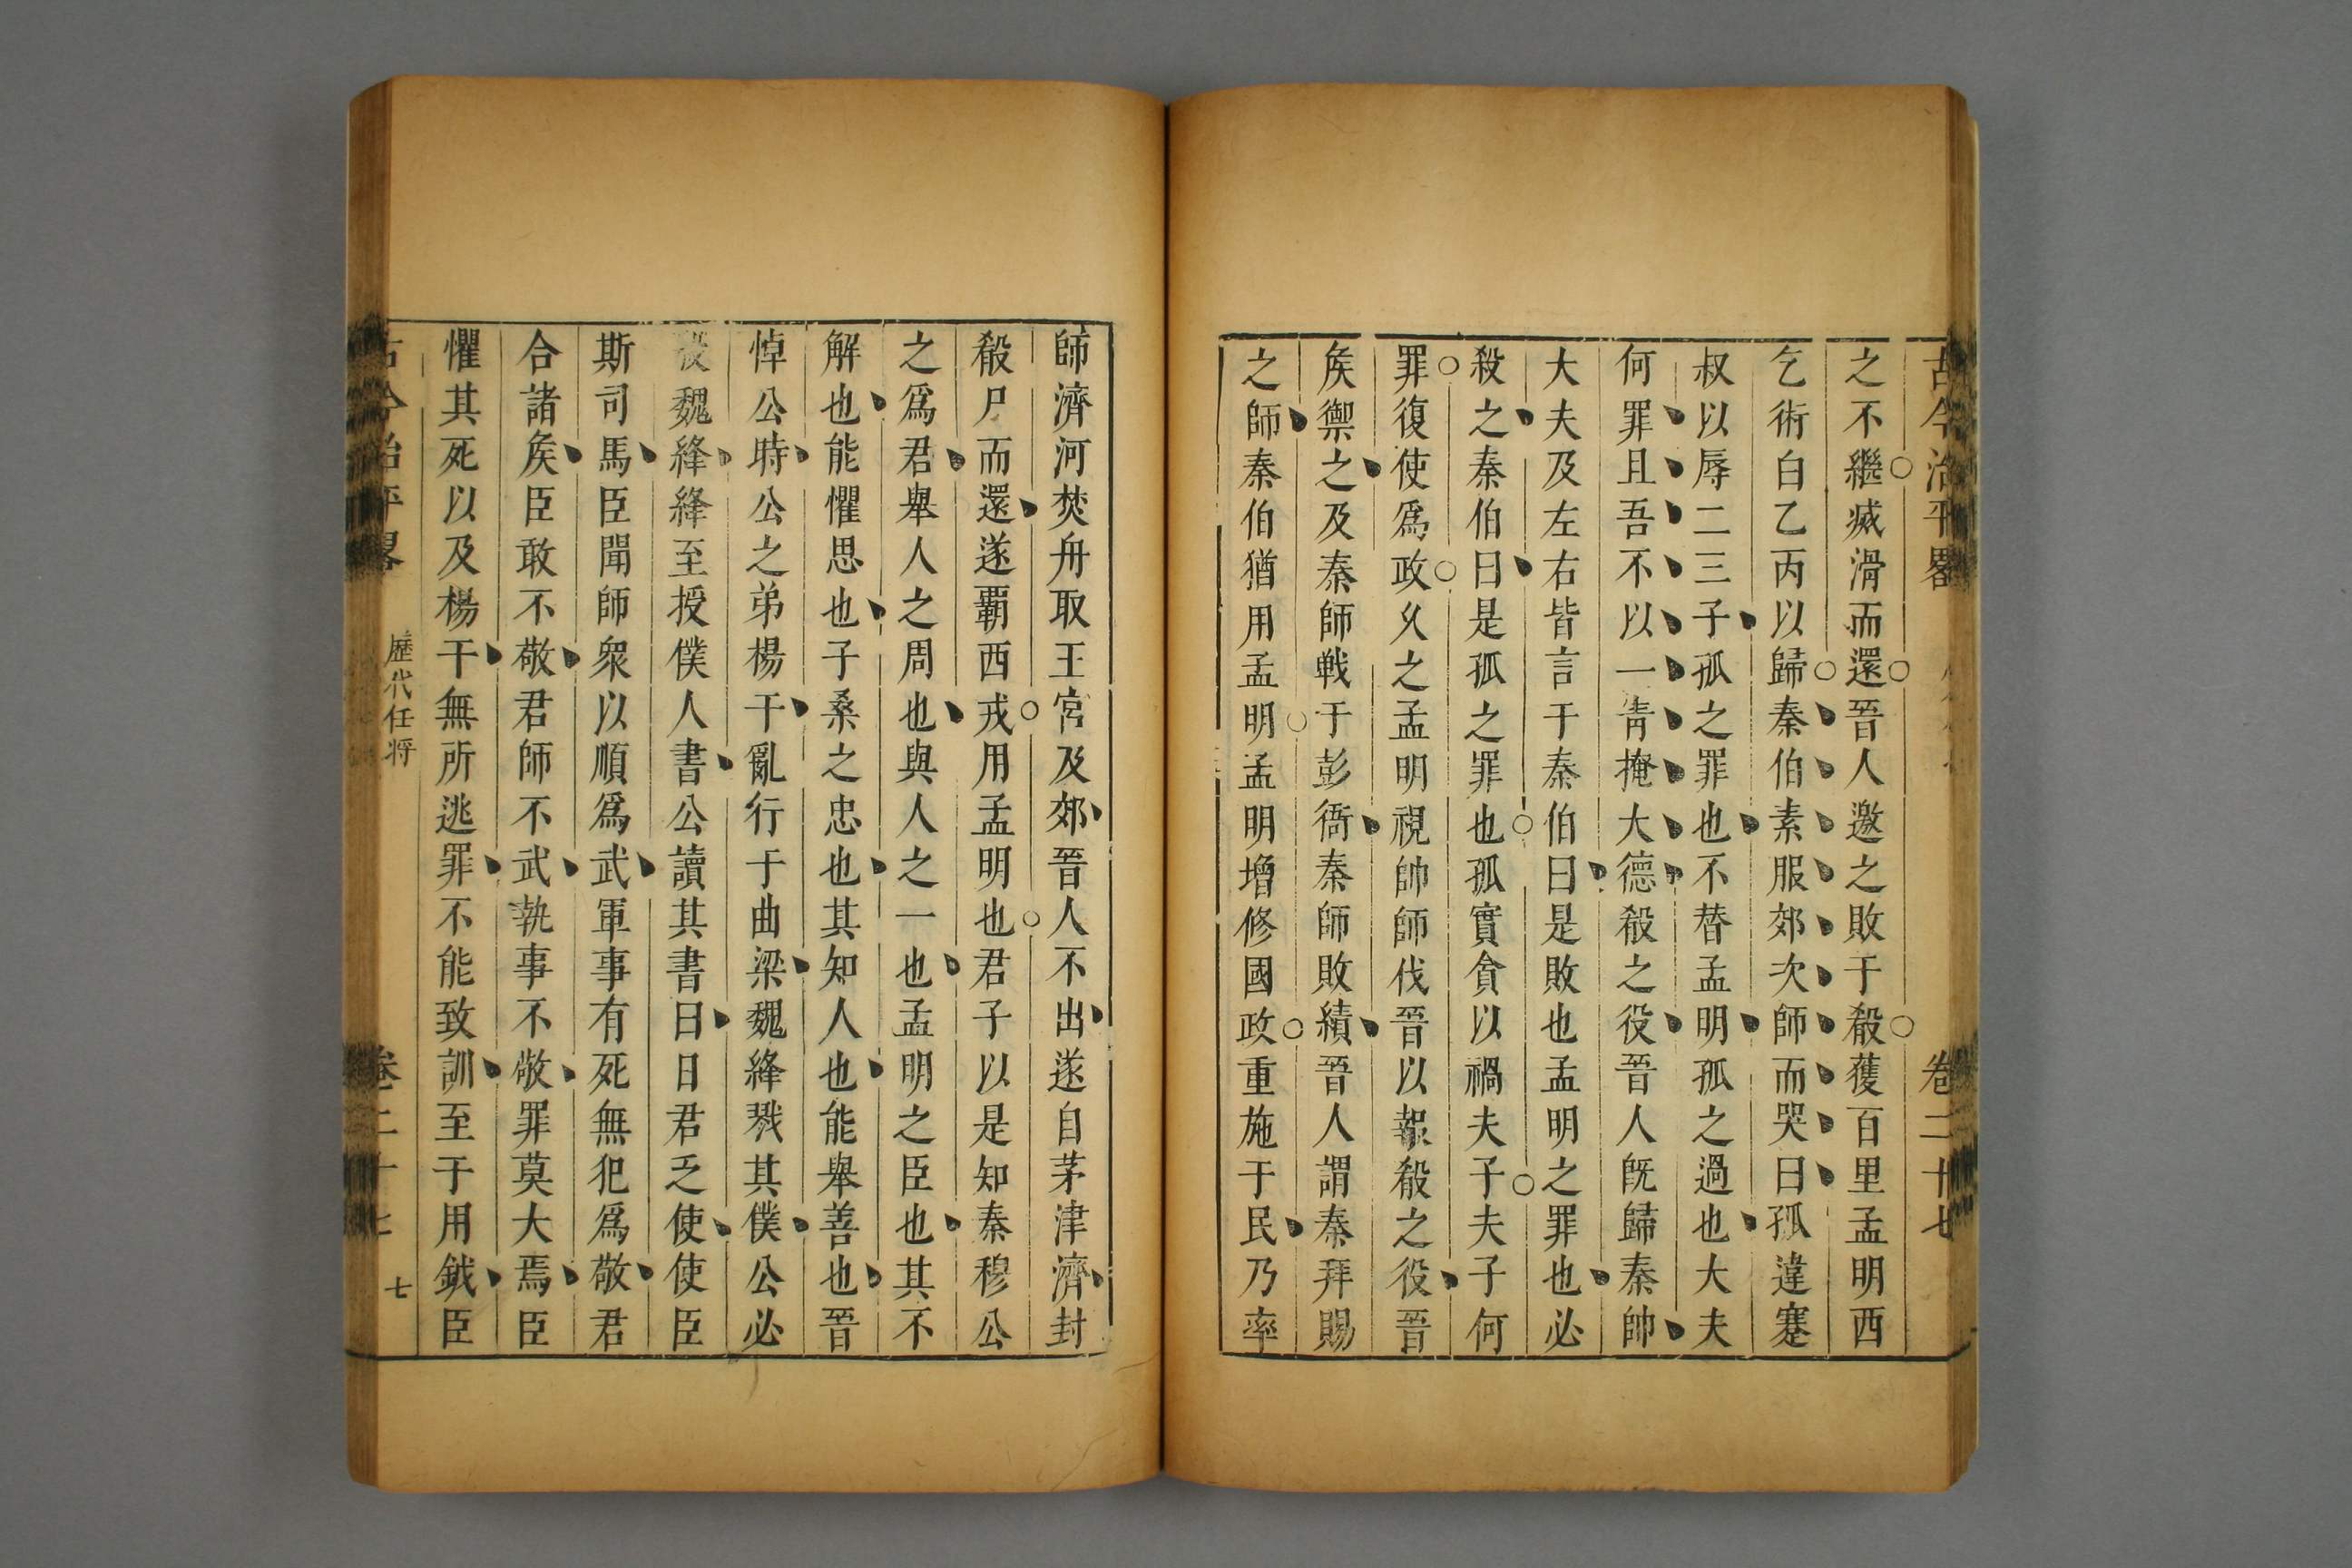 古今治平畧 卷二十七
之不繼㓕滑而還晉人邀之敗于殽獲百里孟明西
乞術白乙丙以歸秦伯素服郊次師而哭曰孤違蹇
叔以辱二三子孤之罪也不替孟明孤之過也大夫
何罪且吾不以一眚掩大德殽之役晉人旣歸秦帥
大夫及左右皆言于秦伯曰是敗也孟明之罪也必
殺之秦伯曰是孤之罪也孤實貪以禍夫子夫子何
罪復使爲政乆之孟明視帥師伐晉以報殽之役晉
矦禦之及秦師戰于彭衙秦師敗績晉人謂秦拜賜
之師秦伯猶用孟明孟明增修國政重施于民乃率
師濟河焚舟取王宮及郊晉人不出遂自茅津濟封
殽尸而還遂覇西戎用孟明也君子以是知秦穆公
之爲君舉人之周也與人之一也孟明之臣也其不
解也能懼思也子桑之忠也其知人也能舉善也晉
悼公時公之弟楊干亂行于曲梁魏絳戮其僕公必
殺魏絳絳至授僕人書公讀其書曰日君乏使使臣
斯司馬臣聞師衆以順爲武軍事有死無犯爲敬君
合諸矦臣敢不敬君師不武執事不敬罪莫大焉臣
懼其死以及楊干無所逃罪不能致訓至于用鉞臣
古今治平畧 歷代任將 卷二十七 七